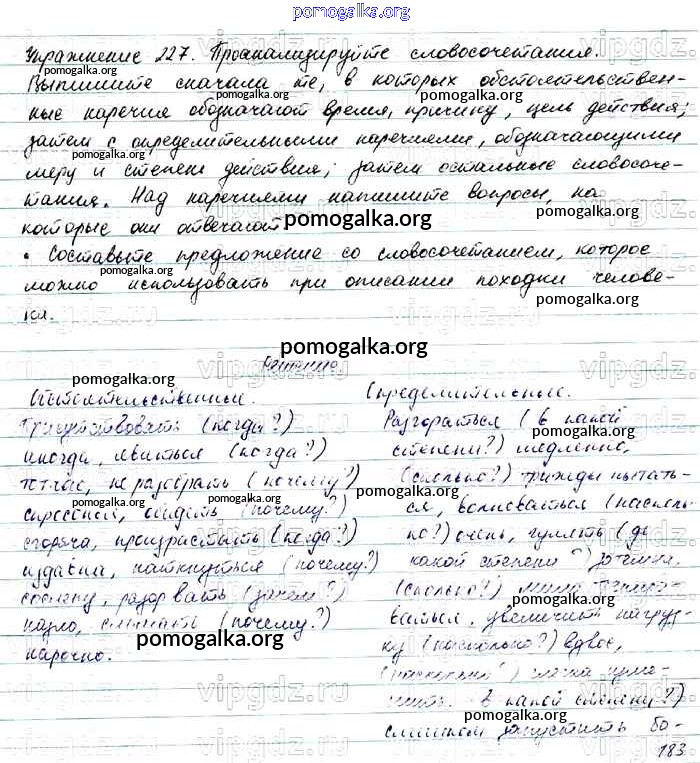 pomogalka.org
Упражнение 227. Проанализируйте словосочетания.
Выпишите сначала те, в которых обстоятельствен-
ные наречия обозначают время, причину, цель действия;
затем с определительными наречиями, обозначающими
меру и степени действия; затем остальные словосоче-
тания. Над наречиями напишите вопросы, на
которые они отвечают
pomogalka.org
• Составьте предложение со словосочетанием, которое
можно использовать при описании походки челове-
ка.
pomogalka.org
Решение
Обстоятельственные.
Присутствовать (когда?)
иногда, явиться (когда?)
тотчас, не разобрать (почему?)
спросонок, обидеть (почему?)
сгоряча, произрастать (когда?)
издавна, наткнуться (почему?)
сослепу, разорвать (зачем?)
назло, сломать (почему?)
нарочно.
Определительные.
Разгораться (в какой
степени?) медленно,
(сколько?) трижды пытать-
ся, волноваться (насколь-
ко?) очень, гулять (до
какой степени?) дотемна,
(сколько?) много
ваться, увеличить нагруз-
ку (насколько?) вдвое,
(насколько?) слегка
в какой степени?)
слишком запустить бо-
183